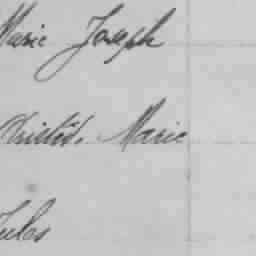 Marie Joseph
Christod. Marie
Jules